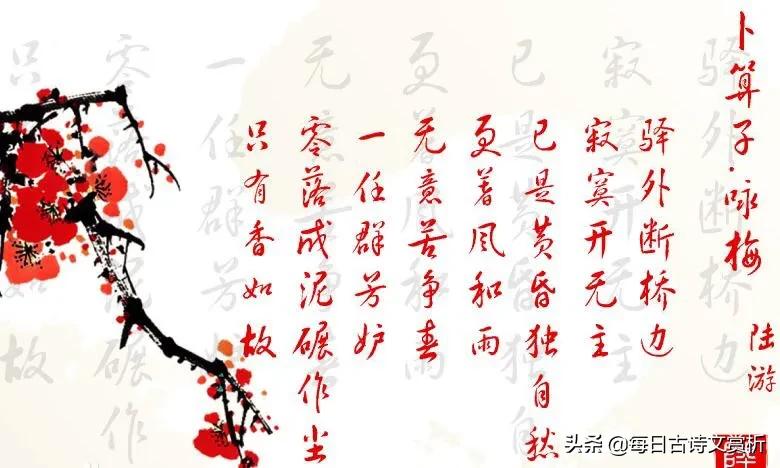 卜算子·咏梅
陆游
驿外断桥边
寂寞开无主
已是黄昏独自愁
更著风和雨
无意苦争春
一任群芳妒
零落成泥碾作尘
只有香如故
头条 @每日古诗文赏析